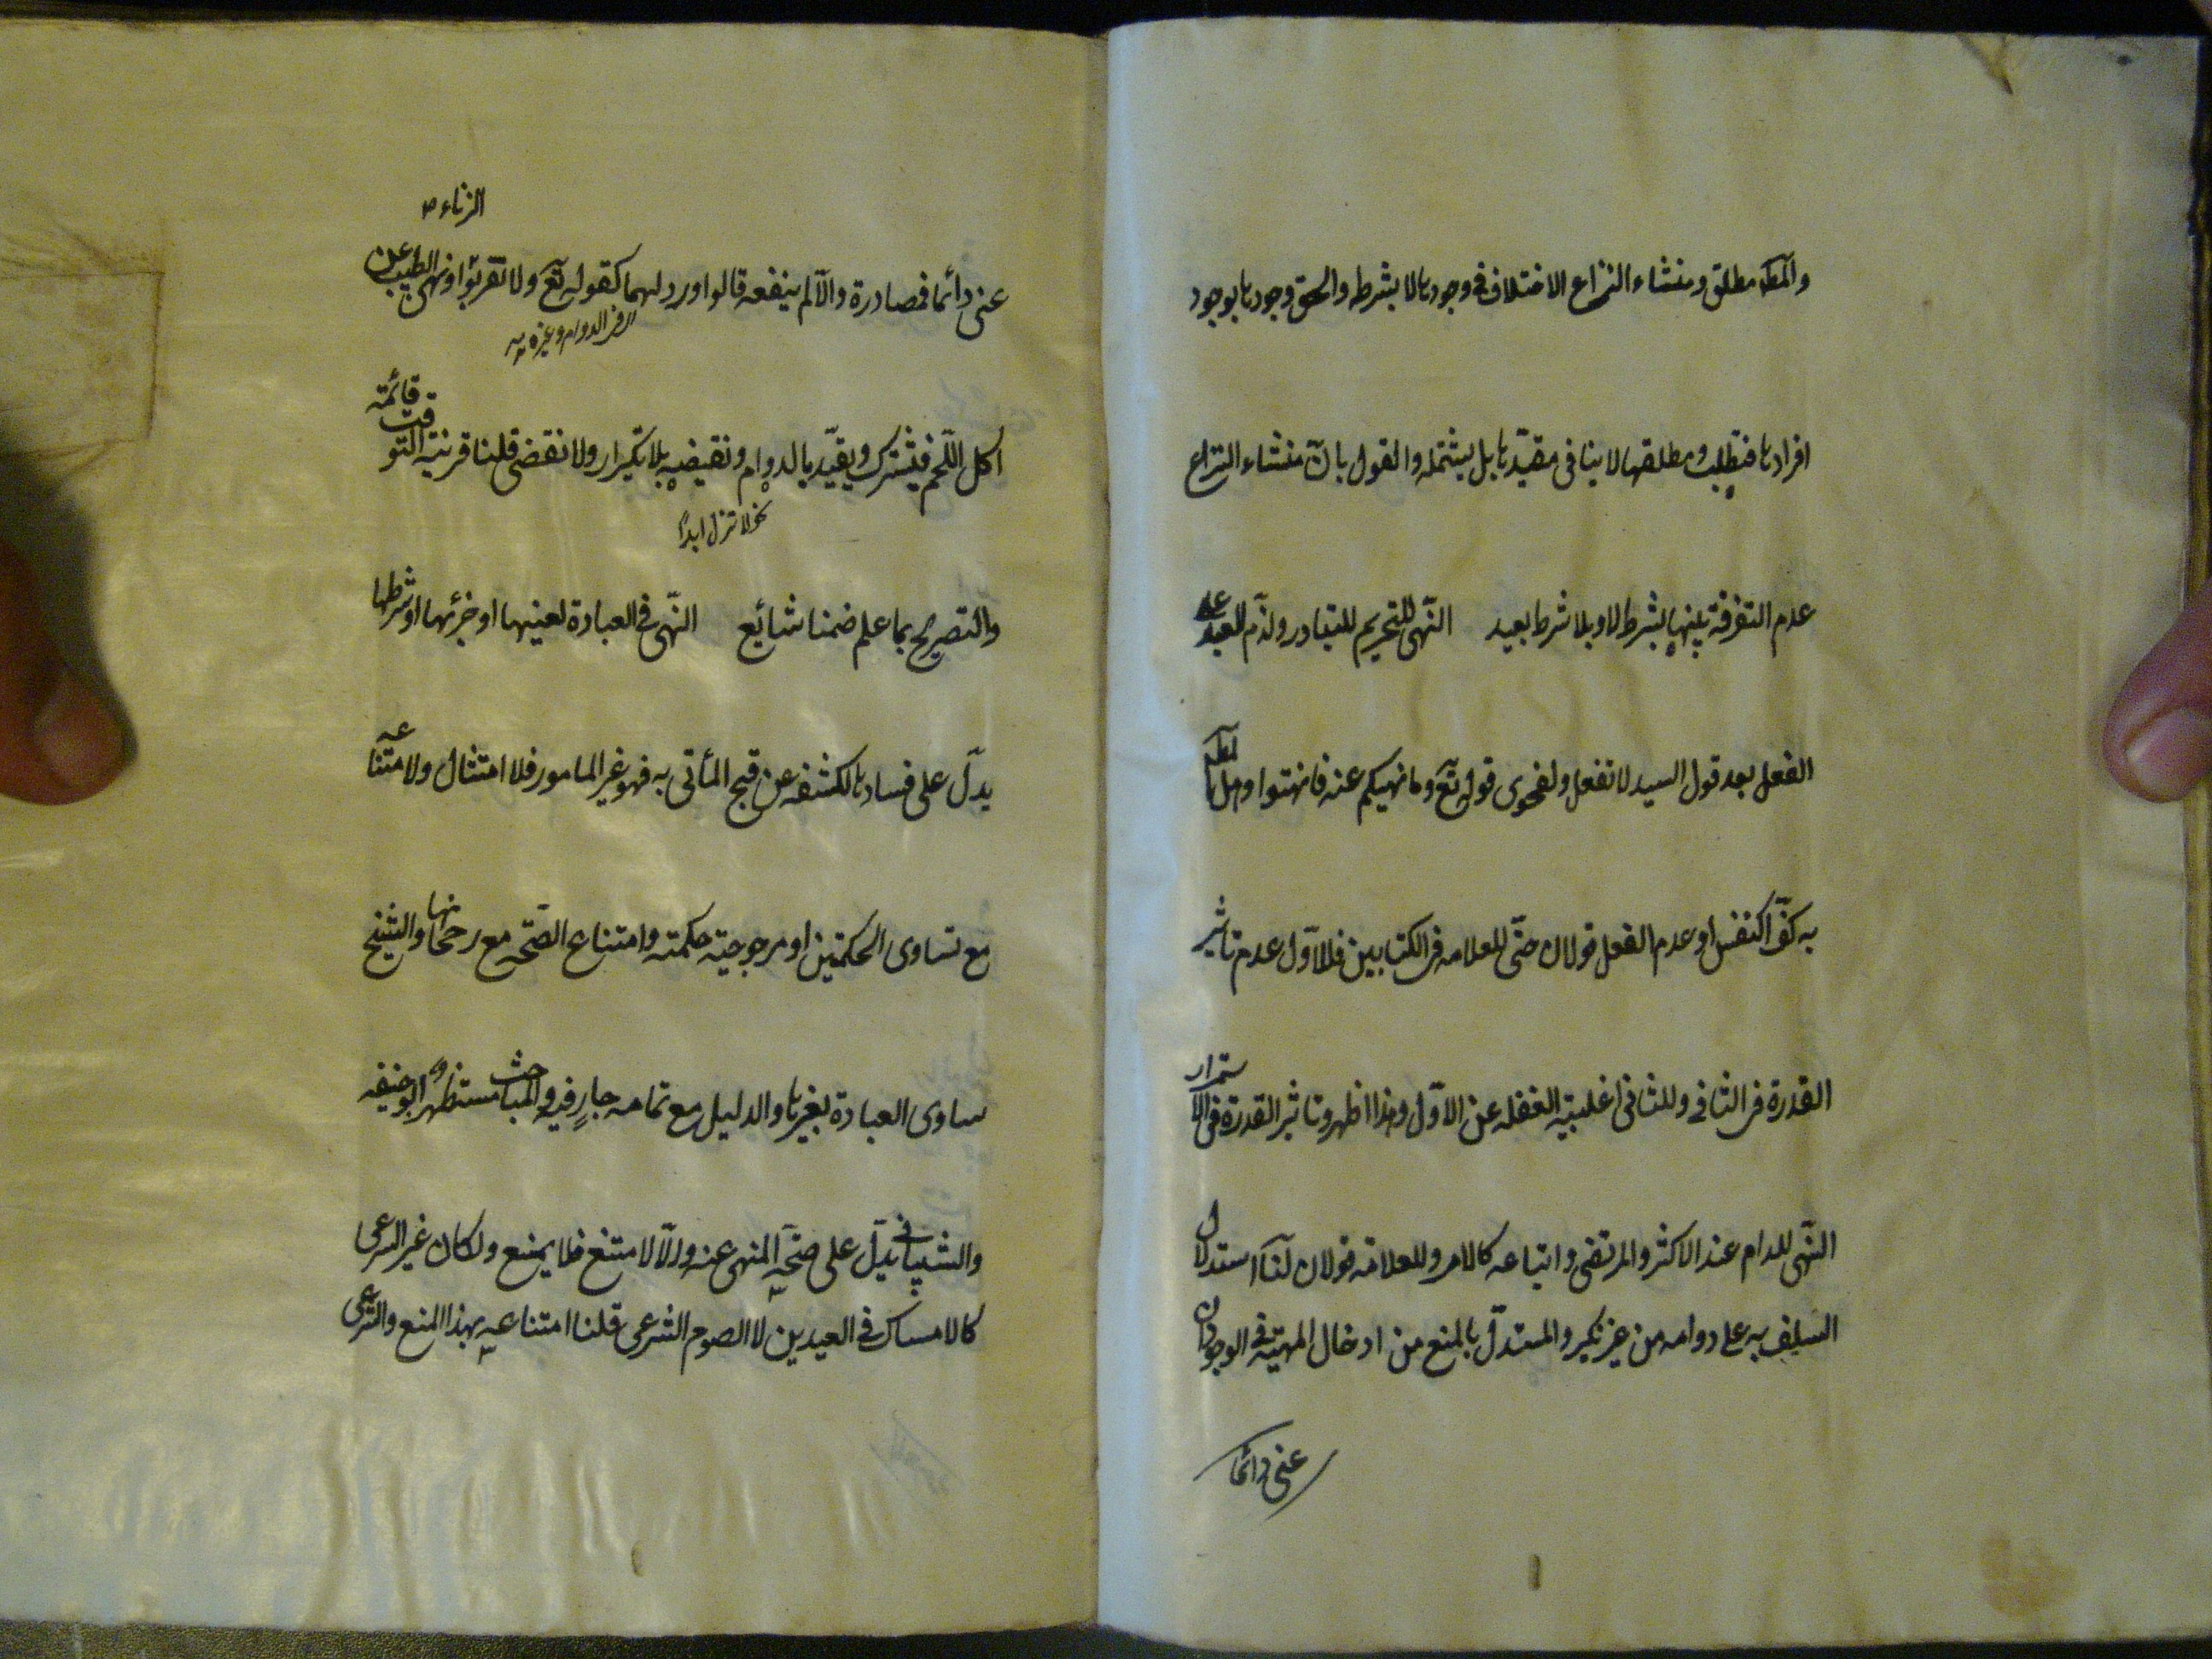 والمط مطلق ومنشاء النزاع الاختلاف فى وجودها لا بشرط والحق وجودها بوجود
افرادها فتطلب ومطلقها لا ينافى مقيدها بل يشتمله والقول بان منشاء النزاع
عدم التفرقة بينها بشرط لا وبلا شرط بعيد النهى للتحريم للتبادر ولذم العبد على
الفعل بعد قول السيد لا تفعل ولفحوى قوله تع وما نهيكم عنه فانتهوا وهل المط
به كف النفس او عدم الفعل قولان حتى للعلامه فى الكتابين فللاول عدم تاثير
القدرة فى الثانى وللثانى اغلبية الغفله عن الاول وهذا اظهر وتاثير القدرة فى الاستمرار
النهى للدوام عند الاكثر والمرتضى واتباعه كالامر وللعلامة قولان لنا استدلال
السلف به على دوامه من غير نكير والمستدل بالمنع من ادخال المهية فى الوجود ان
عنى دائما
الزناء
عنى دائما فصادرة والا لم ينفعه قالوا ورد لهما كقوله تع ولا تقربوا ونهى الطبيب عن
اكل اللحم فيشترك ويقيد بالدوام ونقيضه بلا تكرار ولا نقض قلنا قرينة التوقيت قائمة
نحو لا تزل ابدا
والتصريح بما علم ضمنا شائع النهى فى العبادة لعينها او جزئها او شرطها
يدل على فسادها لكشفه عن قبح المأتى به فهو غير المامور فلا امتثال ولامتناعه
مع تساوى الحكمتين او مرجوحية حكمته وامتناع الصحه مع رجحانها والشيخ
ساوى العبادة بغيرها والدليل مع تمامه جار فيه والمباحث مستظهره ابو حنيفه
والشيبانى يدل على صحة المنهى عنه والا لامتنع فلا يمنع ولكان غير الشرعى
كالامساك فى العيدين لا الصوم الشرعى قلنا امتناعه بهذا المنع والشرعى